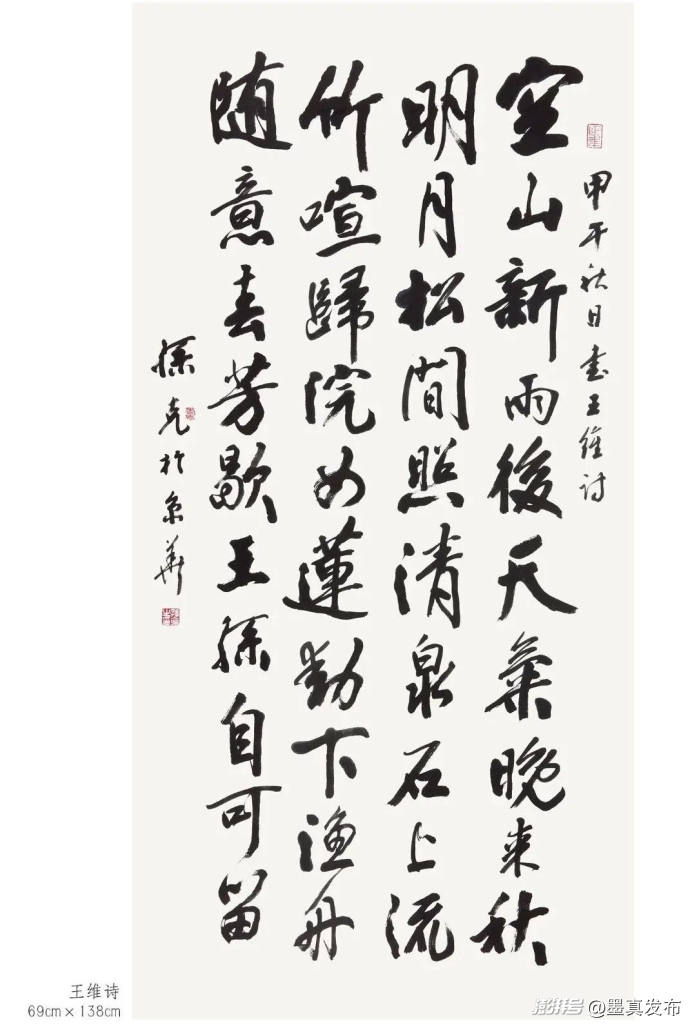 甲午秋日書王維詩
空山新雨後天氣晚来秋
明月松間照清泉石上流
竹喧歸浣女蓮動下漁舟
随意春芳歇王孫自可留
孫克於京華
王维诗
69cm×138cm
澎湃号 @墨真发布